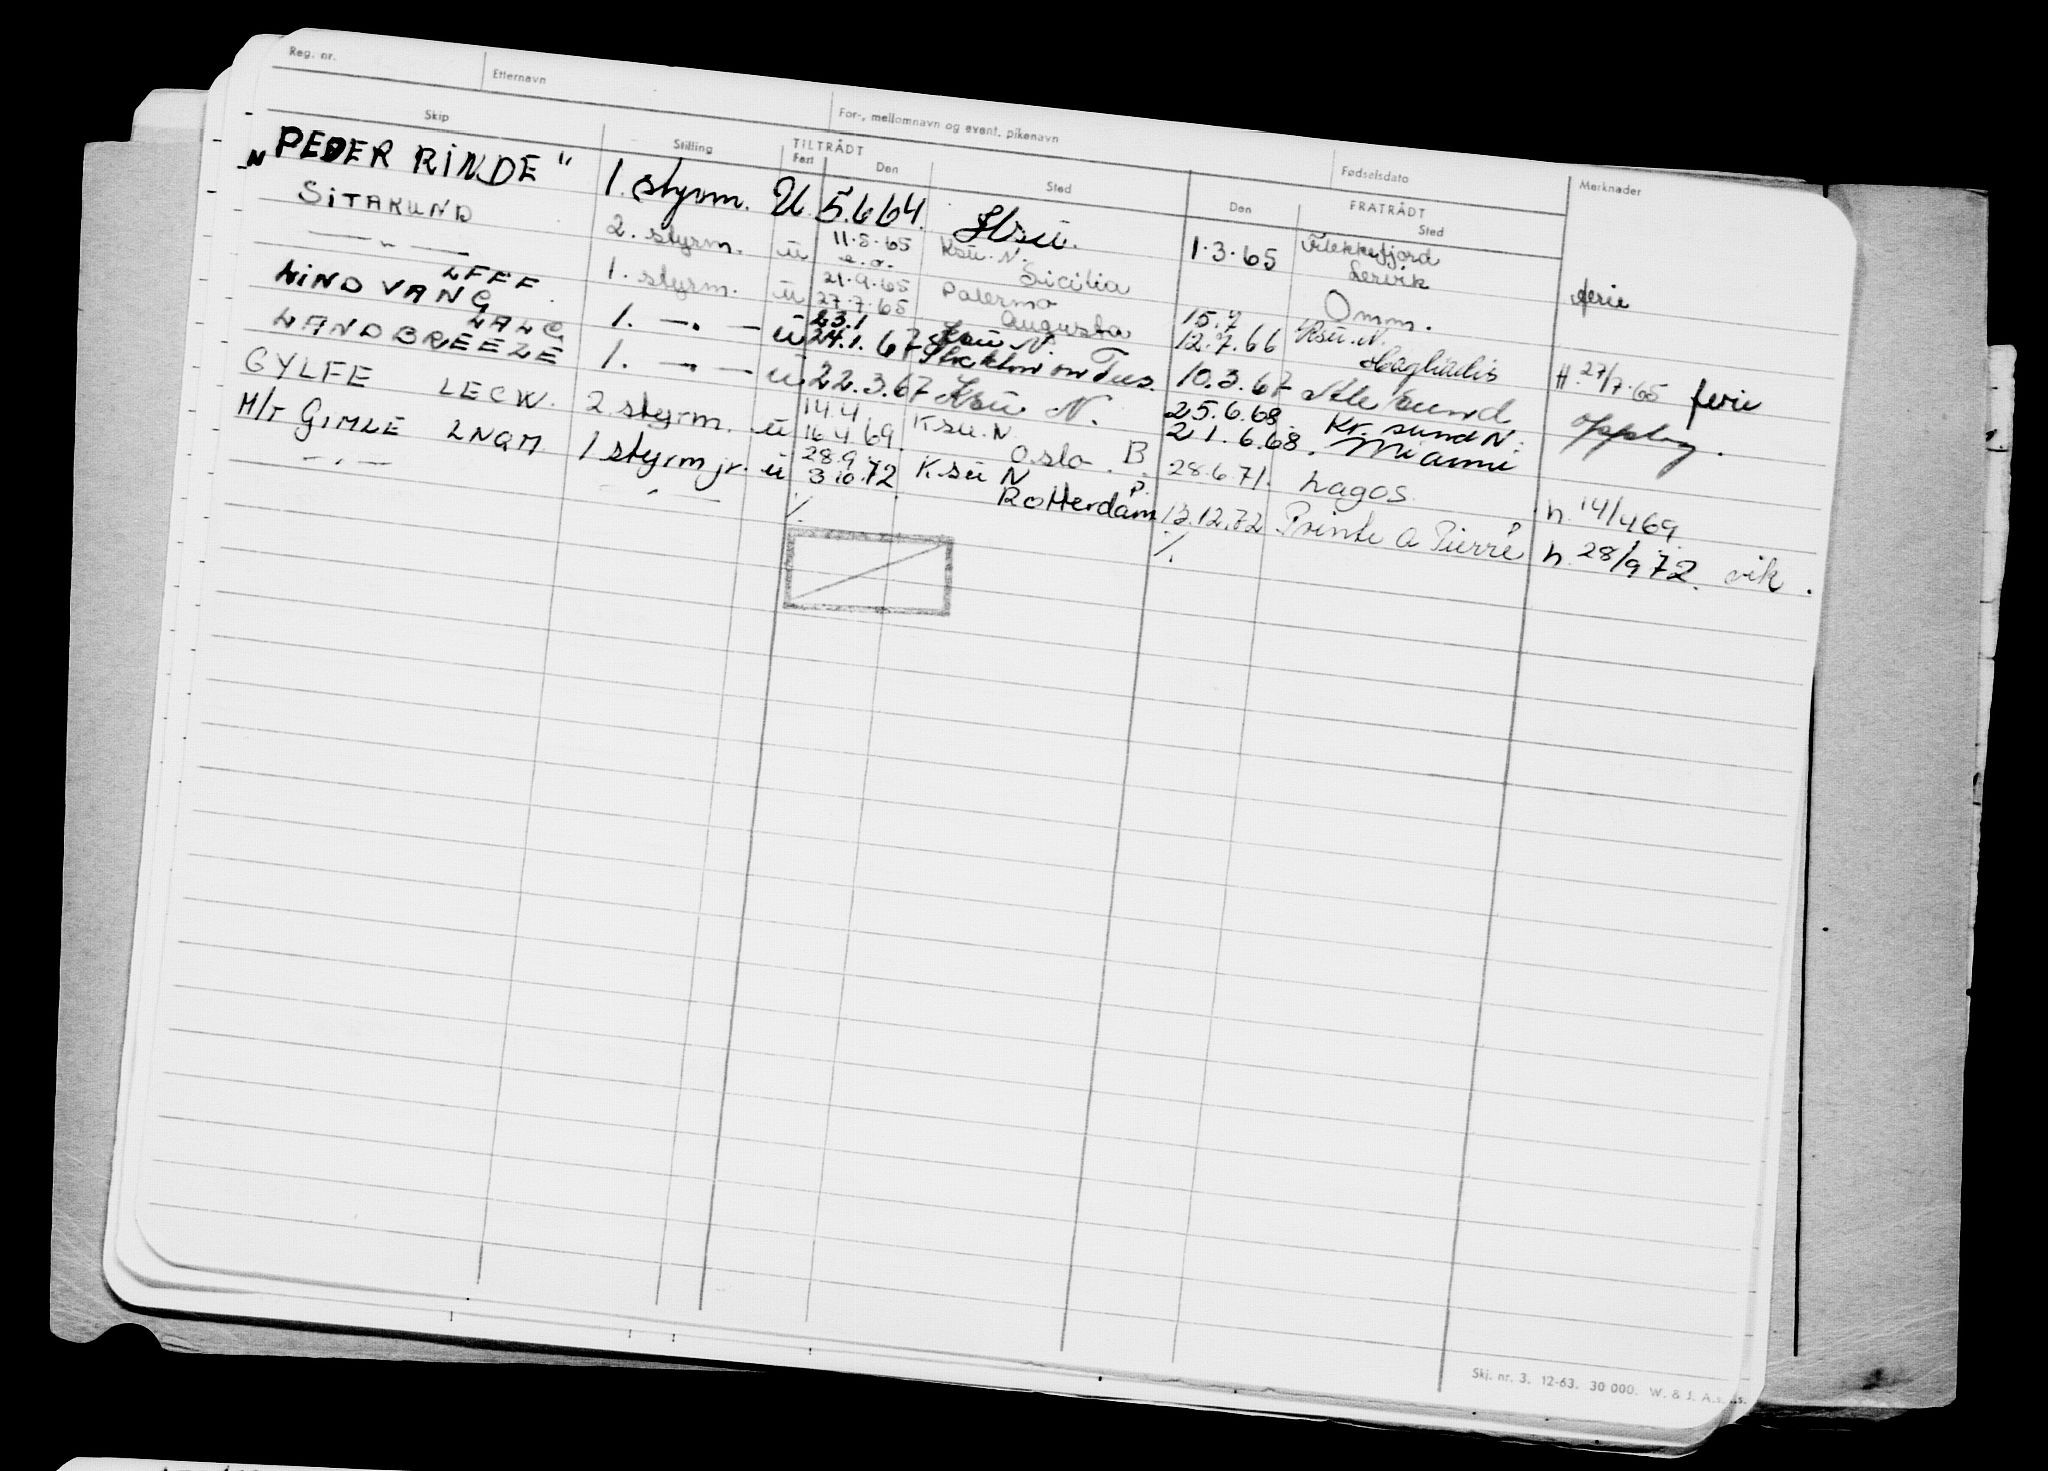 Reg. nr. Etternavn For-, mellomnavn og event. pikenavn Fødselsdato Merknader
Skip Stilling TILTRÅDT FRATRÅDT
Fart Den Sted Den Sted
"PEDER RINDE" 1. styrm. U 5.6 64. Ksu. 1.3.65 Flekkefjord ferie
SITAKUND 2. styrm. ü 11.5.65 Ksu. N. Lervik
Sicilia
— " — LFFF. 1. styrm. ü 21.9.65 Palermo Omm.
27.7.65 Augusta 15.7
LINDVANG LALC 1. — " — ü 23.1 Ksu N. 12.7.66 Ksu. N. H. 27/7.65 ferie
24.1.67 Stockton on Tees. 10.3.67
LANDBREEZE 1. — " — ü 22.3.67 Ksu N. Ålesund opplag.
25.6.68 Kr. sund N.
GYLFE LECW. 2 styrm. ü 14.4 Ksu. N 21.6.68. Miami
16.4 69. Oslo. B. 28.6.71. Lagos. h. 14/4 69
M/T GIMLE LNQM 1 styrm jr. ü 28.9 Ksu N
3.10.72 Rotterdam 13.12.72 Pointe a Pierre h. 28/9 72. vik.
— " — — " — /. /.
Skj. nr. 3. 12-63. 30 000. W. & J. A.s.